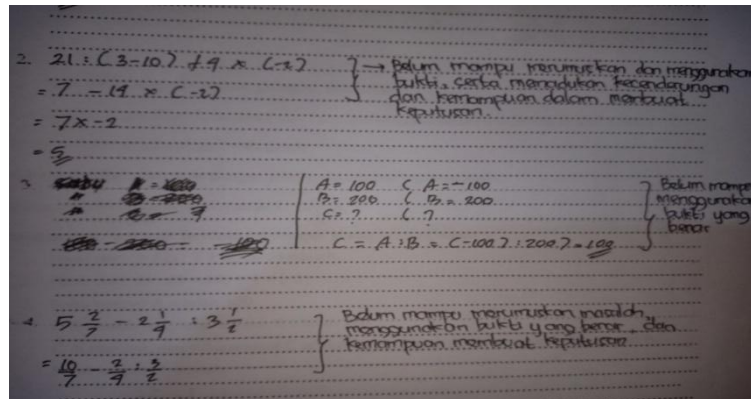 2. 21 : (3-10) + 4 x (-2)
= 7 - 14 x (-2)
= 7 x -2
= 5
→ Belum mampu merumuskan dan menggunakan
bukti, serta memadukan kecenderungan
dan kemampuan dalam membuat
keputusan.
3.
A = 100 ( A = -100
B = 200 ( B = 200
C = ? ( ?
C = A : B = (-100) : 200) = 100
Belum mampu
menggunakan
bukti yang
benar
4 5 2/7 - 2 1/4 : 3 1/2
= 10/7 - 2/4 : 3/2
Belum mampu merumuskan masalah,
menggunakan bukti yang benar, dan
kemampuan membuat keputusan